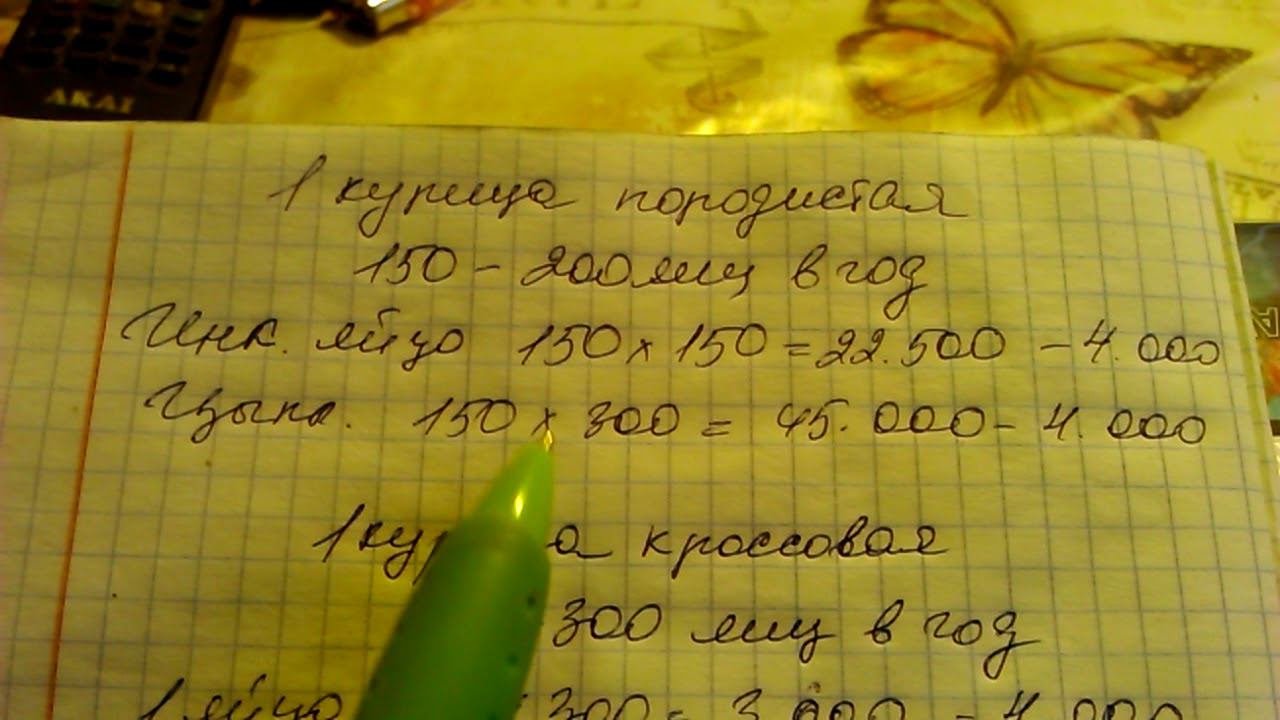 AKAI
1 курица породистая
150 - 200 яиц в год
Инк. яйцо 150 x 150 = 22.500 - 4.000
Цыпл. 150 x 300 = 45.000 - 4.000
кроссовая
300 яиц в год
1 яйцо 300 = 3.000 - 4.000